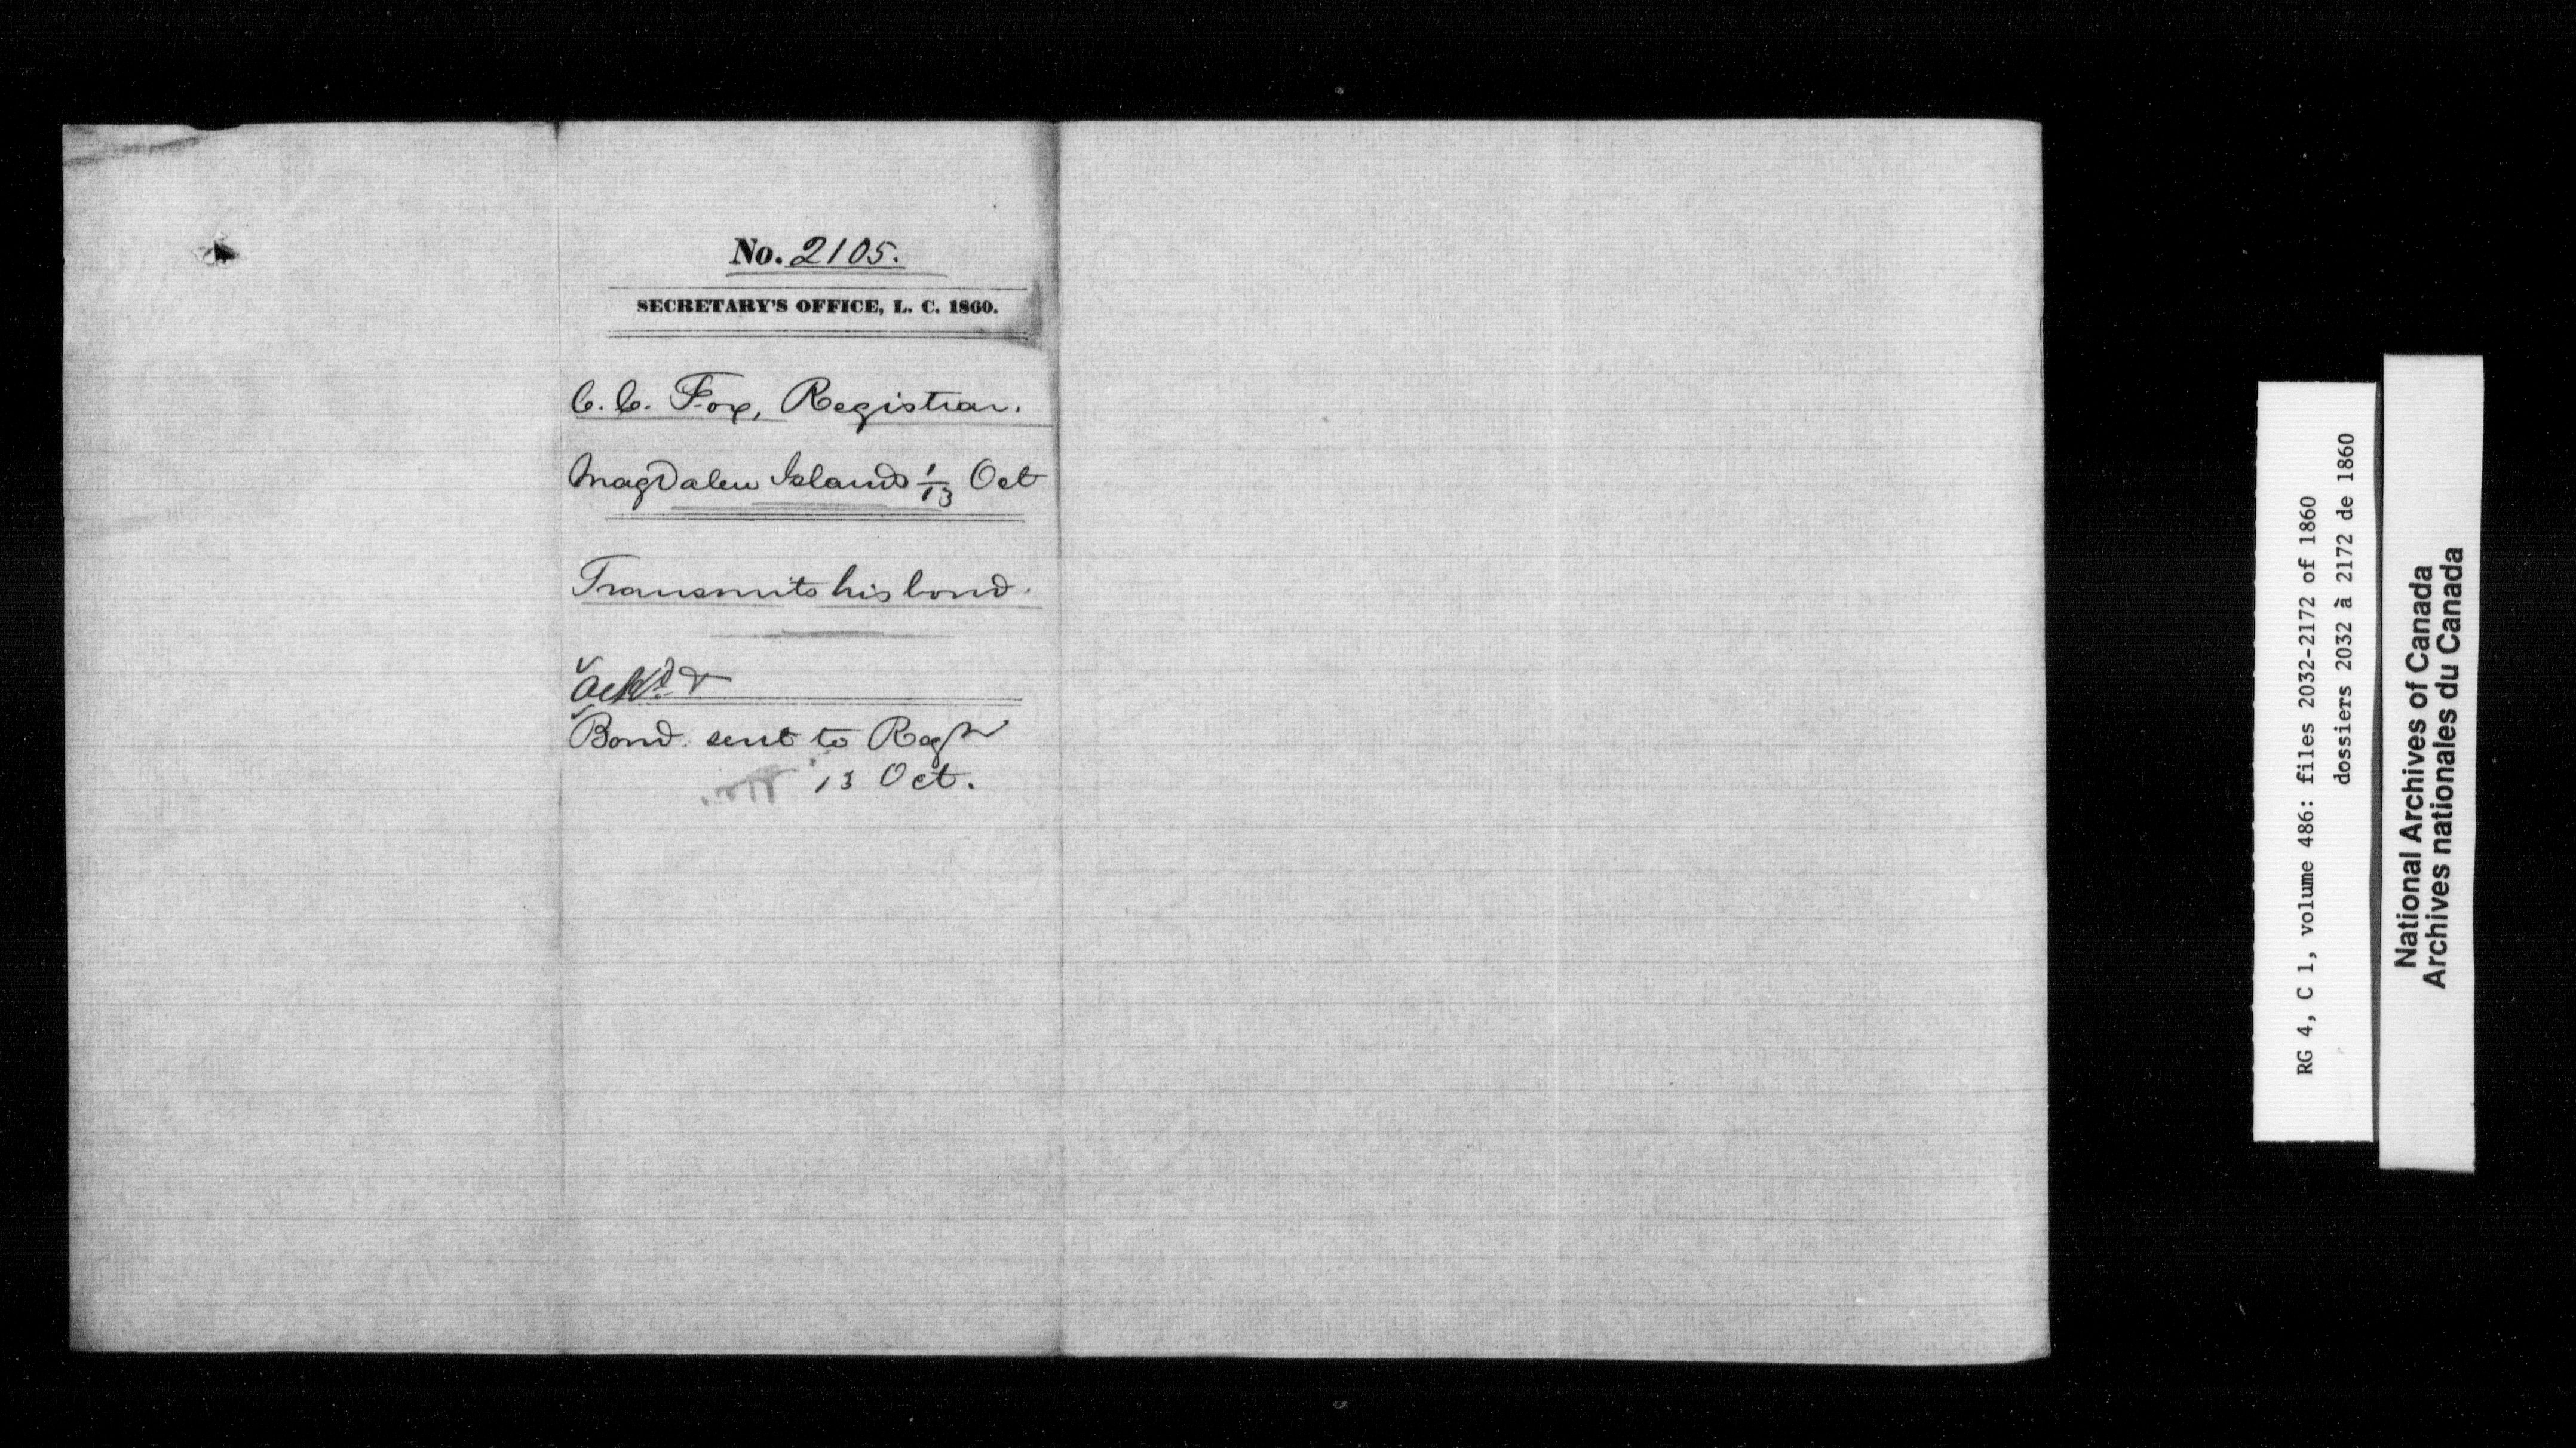 No. 2105.
SECRETARY'S OFFICE, L. C. 1860.
C. C. Fox, Registrar.
Magdalen Islands 1/13 Oct
Transmits his bond.
Ackd &
Bond sent to Regr
13 Oct.
RG 4, C 1, volume 486: files 2032-2172 of 1860
dossiers 2032 à 2172 de 1860
National Archives of Canada
Archives nationales du Canada